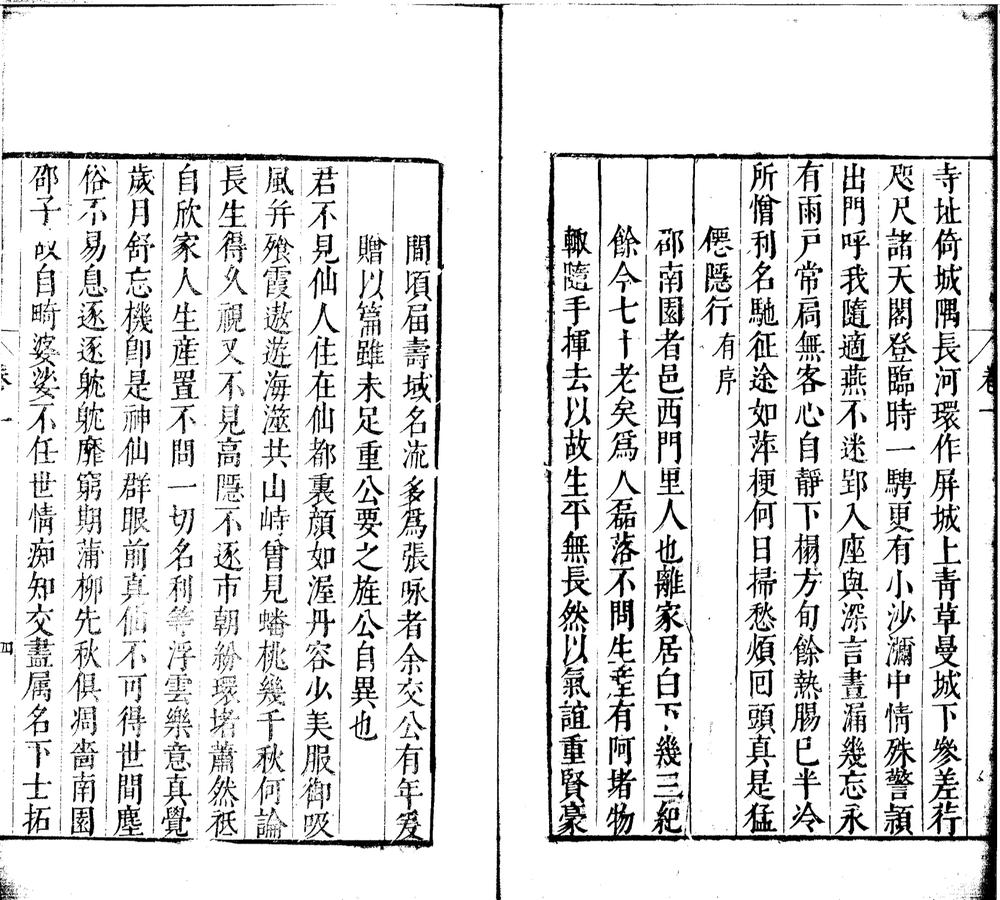 寺址倚城隅長河環作屏城上青草曼城下參差荇
咫尺諸天閣登臨時一騁更有小沙瀰中情殊警頴
出門呼我隨適燕不迷郢入座與深言晝漏幾忘永
有雨戸常扃無客心自靜下榻方旬餘熱腸已半冷
所憎利名馳征途如萍梗何日掃愁煩回頭真是猛
僊隱行有序
邵南園者邑西門里人也離家居白下幾三紀
餘今七十老矣爲人磊落不問生産有阿堵物
輙隨手揮去以故生平無長然以氣誼重賢豪
卷一
間頃届壽域名流多爲張咏者余交公有年爰
贈以篇雖未足重公要之旌公自異也
君不見仙人住在仙都裏顔如渥丹容少美服御吸
風并飱霞遨遊海澨共山峙曾見蟠桃幾千秋何論
長生得久視又不見高隱不逐市朝紛環堵蕭然祗
自欣家人生産置不問一切名利等浮雲樂意真覺
歲月舒忘機卽是神仙群眼前真仙不可得世間塵
俗不易息逐逐躭躭靡窮期蒲柳先秋俱凋嗇南園
邵子 自畸婆娑不任世情痴知交盡属名下士拓
卷一
四